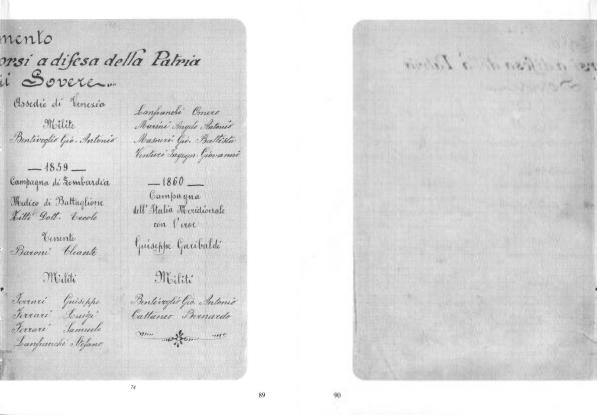 mento
orsi a difesa della Patria
di Sovere
Assedio di Venezia
Milite
Bentivoglio Gio. Antonio
1859
Campagna di Lombardia
Medico di Battaglione
Zitti Dott. Ercole
Tenente
Baroni Cleante
Militi
Ferrari Giuseppe
Ferrari Luigi
Ferrari Samuele
Lanfranchi Stefano
Lanfranchi Omero
Marini Angelo Antonio
Masseri Gio. Battista
Venturi Ingegn. Giovanni
1860
Campagna
dell'Italia Meridionale
con l'eroe
Giuseppe Garibaldi
Militi
Bentivoglio Gio. Antonio
Cattaneo Bernardo
74
89
90